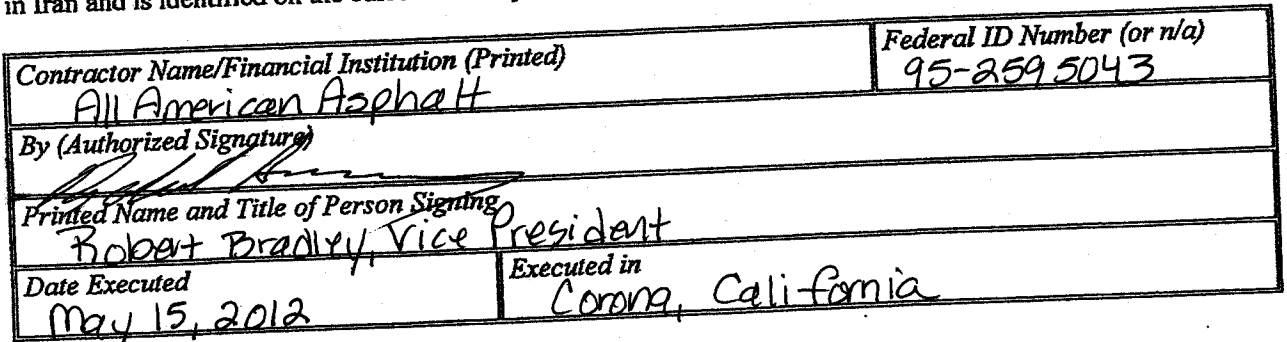 in Iran and is identified on the
Contractor Name/Financial Institution (Printed)
All American Asphalt
Federal ID Number (or n/a)
95-2595043
By (Authorized Signature)
Printed Name and Title of Person Signing
Robert Bradley, Vice President
Date Executed
May 15, 2012
Executed in
Corona, California